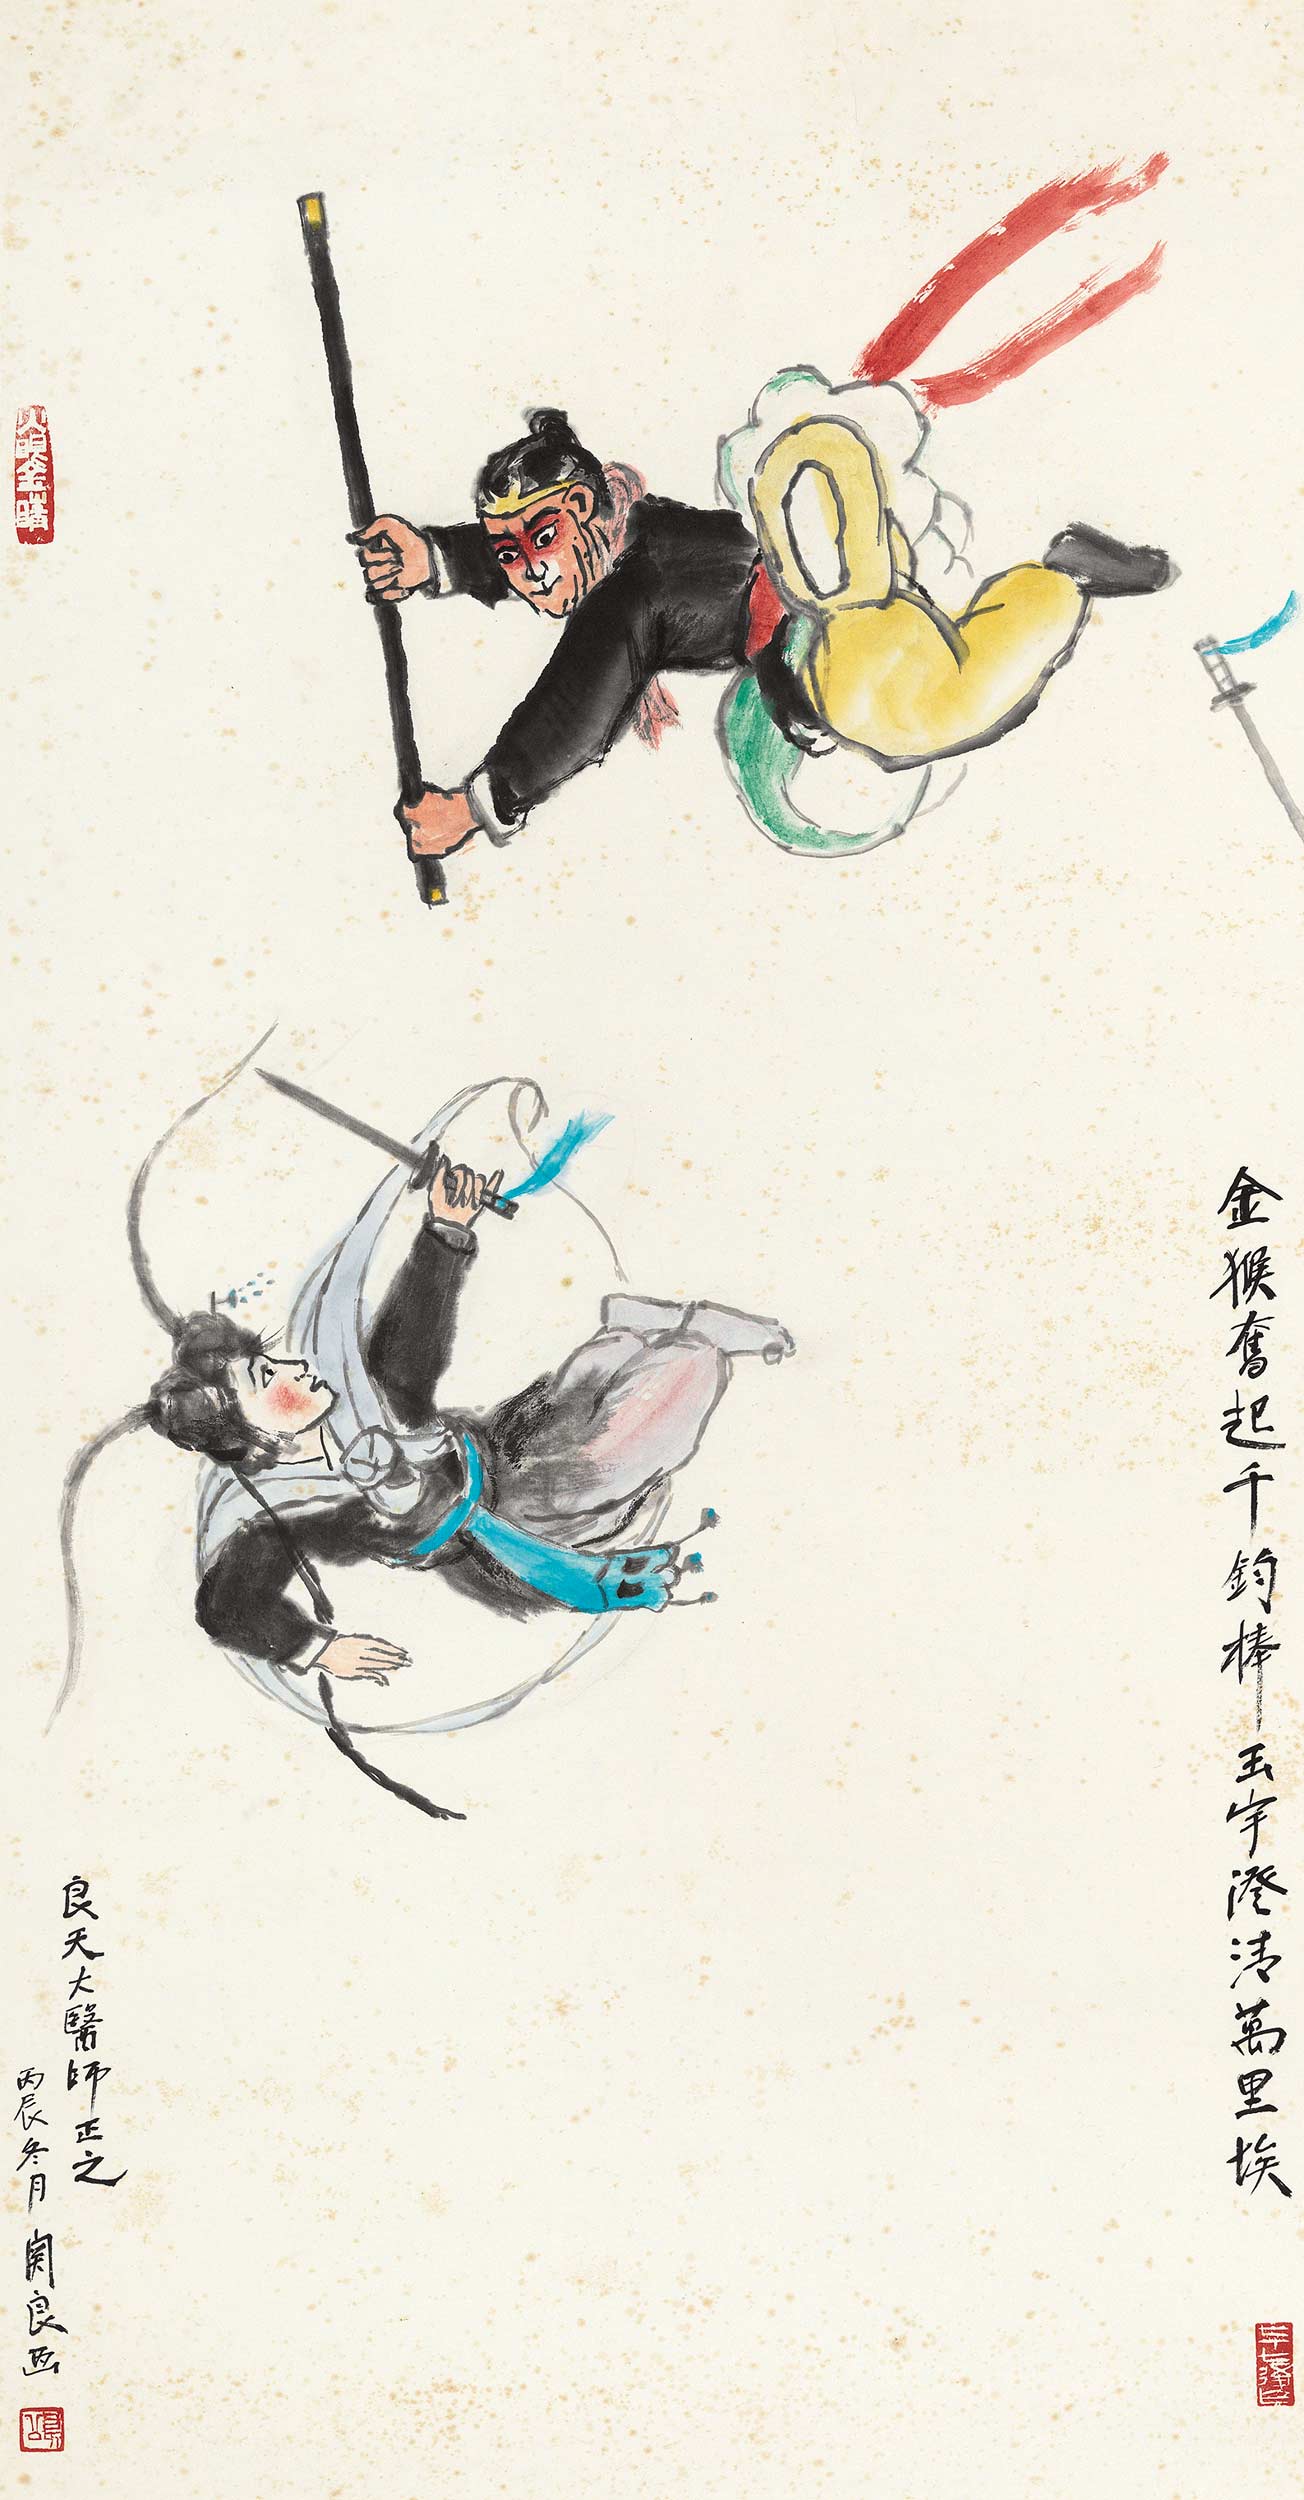 金猴奮起千鈞棒玉宇澄清萬里埃
良天大醫師正之
丙辰冬月
関良画
火眼金睛